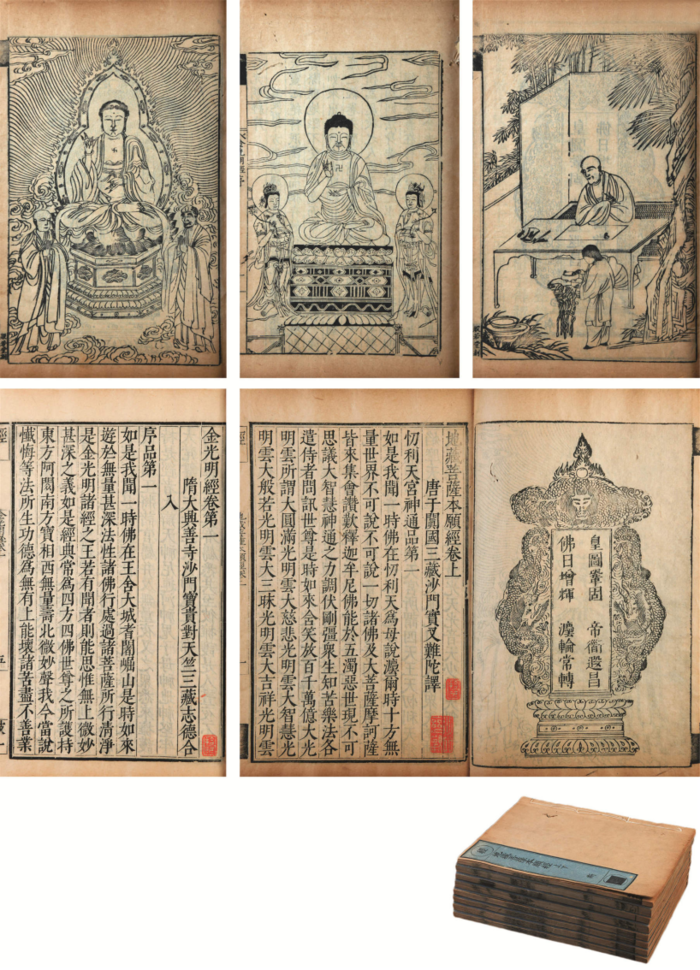 金光明經卷第一
隋大興善寺沙門寶貴對天竺三藏志德合
入
序品第一
如是我聞一時佛在王舍大城耆闍崛山是時如來
遊於無量甚深法性諸佛行處過諸菩薩所行清淨
是金光明諸經之王若有聞者則能思惟無上微妙
甚深之義如是經典常為四方四佛世尊之所護持
東方阿閦南方寶相西無量壽北微妙聲我今當說
懺悔等法所生功德為無有上能壞諸苦盡不善業
地藏菩薩本願經卷上
唐于闐國三藏沙門實叉難陀譯
忉利天宮神通品第一
如是我聞一時佛在忉利天為母說灋爾時十方無
量世界不可說不可說一切諸佛及大菩薩摩訶薩
皆來集會讚歎釋迦牟尼佛能於五濁惡世現不可
思議大智慧神通之力調伏剛彊眾生知苦樂法各
遣侍者問訊世尊是時如來含笑放百千萬億大光
明雲所謂大圓滿光明雲大慈悲光明雲大智慧光
明雲大般若光明雲大三昧光明雲大吉祥光明雲
皇圖鞏固 帝衟遐昌
佛日增輝 灋輪常轉